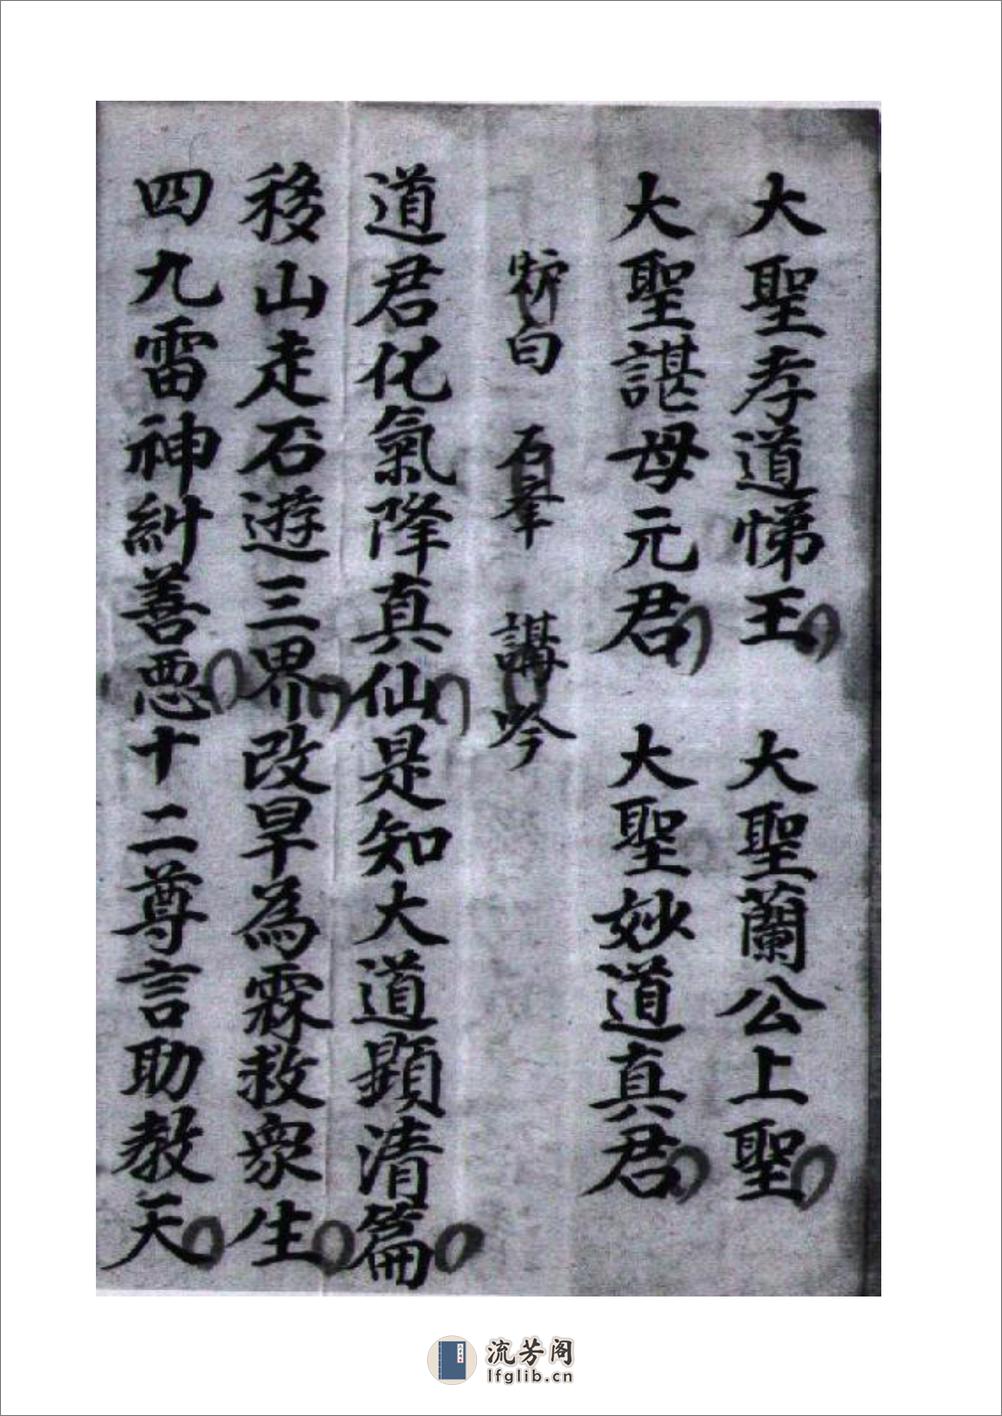 大聖孝道悌王　大聖蘭公上聖
大聖諶母元君　大聖妙道真君
白　石羣　講吟
道君化氣降真仙是知大道顯清篇
移山走石遊三界改旱為霖救衆生
四九雷神糾善惡十二尊言助教天
流芳阁
lfglib.cn